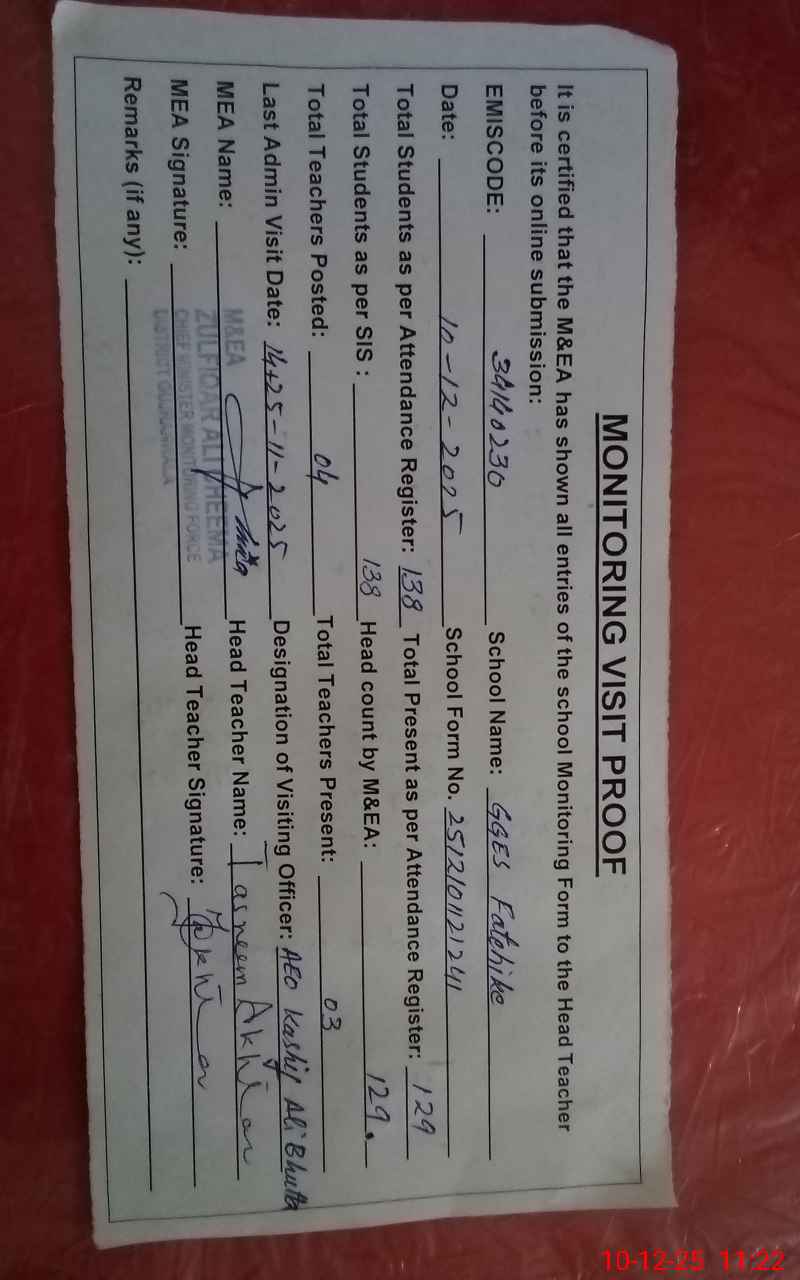 MONITORING VISIT PROOF
It is certified that the M&EA has shown all entries of the school Monitoring Form to the Head Teacher
before its online submission:
EMISCODE: 34140230 School Name: GGES Fatehike
Date: 10-12-2025 School Form No. 2512101121241
Total Students as per Attendance Register: 138 Total Present as per Attendance Register: 129
Total Students as per SIS : 138 Head count by M&EA: 129.
Total Teachers Posted: 04 Total Teachers Present: 03
Last Admin Visit Date: 14+25-11-2025 Designation of Visiting Officer: AEO Kashif Ali Bhutta
MEA Name: Head Teacher Name: Tasneem Akhtar
M&EA
ZULFIQAR ALI CHEEMA
CHIEF MINISTER MONITORING FORCE
DISTRICT GUJRANWALA
MEA Signature: Head Teacher Signature:
Remarks (if any):
10-12-25 11:22